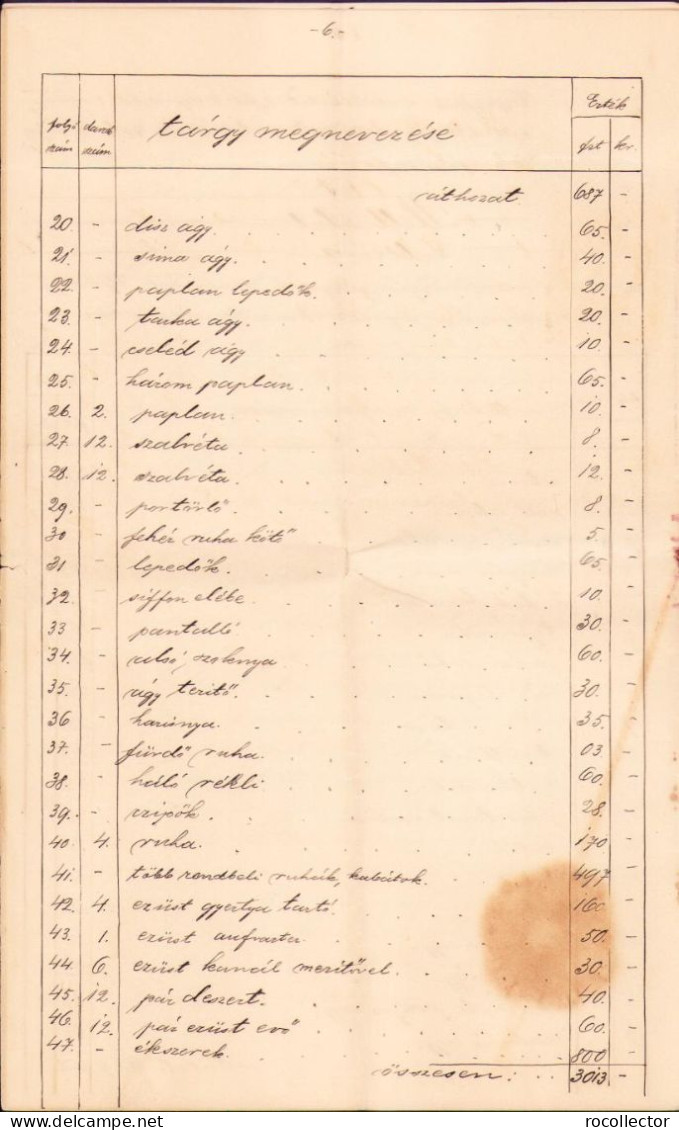 -6.-
folyó szám darab szám tárgy megnevezése Érték
frt kr.
áthozat 687 -
20. - disz ágy. 65. -
21. - sima ágy. 40. -
22. - paplan lepedők. 20. -
23. - tarka ágy. 20. -
24. - cseléd ágy 10. -
25. - három paplan. 65. -
26. 2. paplan. 10. -
27 12. szalvéta. 8. -
28. 12. szalvéta. 12. -
29. - portörlő. 8. -
30 - fehér ruha kötő 5. -
31 - lepedők. 65. -
32. - siffon elébe. 10. -
33 - pantalló 30. -
34. - alsó szoknya 60. -
35. - ágy teritő. 30. -
36 - harisnya. 35. -
37. - fürdő ruha. 03 -
38. - háló rékli 60. -
39. - czipők. 28. -
40. 4. ruha. 170 -
41. - több rendbeli ruhák, kabátok. 497 -
42. 4. ezüst gyertya tartó. 160 -
43. 1. ezüst 50. -
44. 6. ezüst kanál meritővel. 30. -
45. 12. pár deszert. 40. -
46. 12. pár ezüst evő 60. -
47. - ékszerek. 800 -
összesen: 3013. -
delcampe.net
rocollector